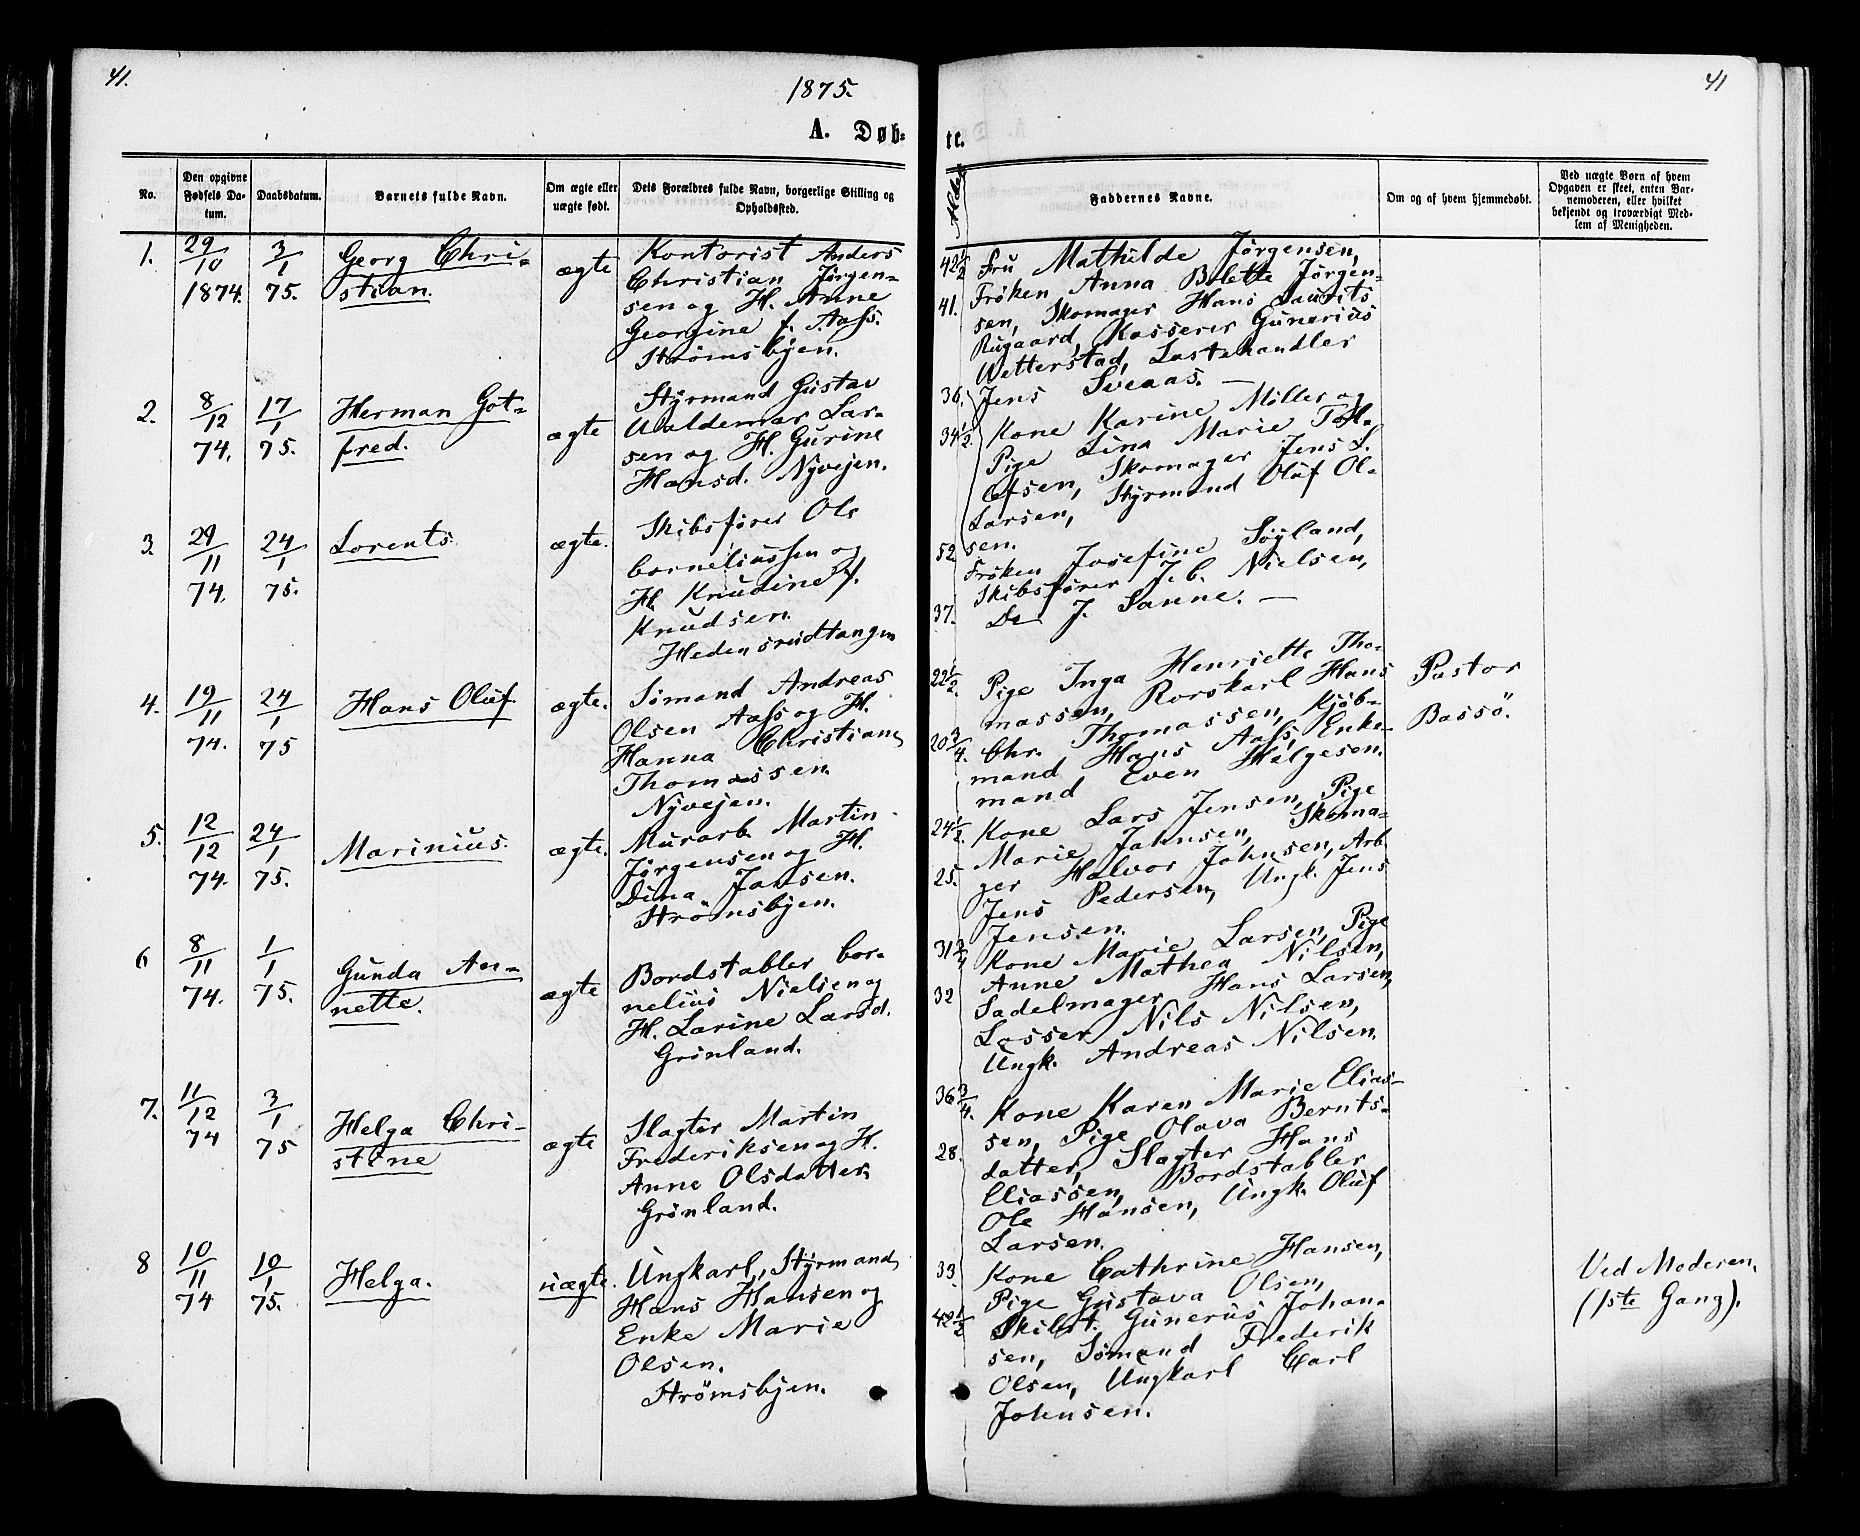 41.
1875.
A. Døb-
No.
Den opgivne Fødsels Datum.
Daabsdatum.
Barnets fulde Navn.
Om ægte eller uægte født.
Dets Forældres fulde Navn, borgerlige Stilling og Opholdssted.
1.
29/10 1874.
3/1 75.
Georg Chri-
stian.
ægte
Kontorist Anders
Christian Jørgen-
sen og H. Anne
Georgine f. Aass.
Strømsbyen.
2.
8/12 74.
17/1 75.
Herman Got-
fred.
ægte
Styrmand Gustav
Valdemar Lar-
sen og H. Gurine
Hansd. Nyvejen.
3.
29/11 74.
24/1 75.
Lorents.
ægte.
Skibsfører Ole
Corneliussen og
H. Knudine f.
Knudsen.
Hedensrudtangen
4.
19/11 74.
24/1 75
Hans Oluf.
ægte.
Sømand Andreas
Olsen Aass og H.
Hanna Christiane
Thomassen.
Nyvejen.
5.
12/12 74.
24/1 75.
Marinius.
ægte.
Murarb. Martin
Jørgensen og H.
Dina Jansen.
Strømsbyen.
6
8/11 74.
1/1 75.
Gunda An-
nette.
ægte
Bordstabler Cor-
nelius Nielsen og
H. Larine Larsd.
Grønland.
7.
11/12 74
3/1 75
Helga Chri-
stine
ægte
Slagter Martin
Frederiksen og H.
Anne Olsdatter.
Grønland.
8
10/11 74
10/1 75.
Helga.
uægte.
Ungkarl, Styrmand
Hans Hansen og
Enke Marie
Olsen.
Strømsbyen.
41
te.
Alder
Faddernes Navne.
Om og af hvem hjemmedøbt.
Ved uægte Born af hvem
Opgaven er skeet, enten Bar-
nemoderen, eller hvilket
bekjendt og troværdigt Med-
lem af Menigheden.
42 1/2
41.
Fru Mathilde Jørgensen,
Frøken Anna Bolette Jørgen-
sen, Skomager Hans Laurits
Rugaard, Kasserer Gunerius
Wetterstad, Lastehandler
Jens Sveaas. —
36.
34 1/2.
Kone Karine Møller og
Pige Lina Marie Toll-
efsen, Skomager Jens L.
Larsen, Styrmand Oluf Ol-
sen.
52
37.
Frøken Josefine Søyland,
Skibsfører J. C. Nielsen,
Do J. Sanne. —
22 1/2.
20 3/4.
Pige Inga Henriette Tho-
massen, Rorskarl Hans
Chr. Thomassen, Kjøb-
mand Hans Aass, Enke-
mand Even Helgesen.
Pastor
Bassö.
24 1/2.
25.
Kone Lars Jensen, Pige
Marie Johnsen, Skoma-
ger Halvor Johnsen, Arb.
Jens Pedersen, Ungk. Jens
Jensen.
31 3/4
32
Kone Marie Larsen, Pige
Anne Mathea Nilsen,
Sadelmager Hans Larsen,
Losser Nils Nilsen,
Ungk. Andreas Nilsen.
36 3/4.
28.
Kone Karen Marie Elias-
sen, Pige Olava Bernts-
datter, Slagter Hans
Eliassen, Bordstabler
Ole Hansen, Ungk. Oluf
Larsen.
33.
42 1/2
Kone Cathrine Hansen,
Pige Gustava Olsen,
Skibst. Gunerus Johan-
sen, Sømand Frederik
Olsen, Ungkarl Carl
Johnsen.
Ved Moderen.
(1ste Gang).